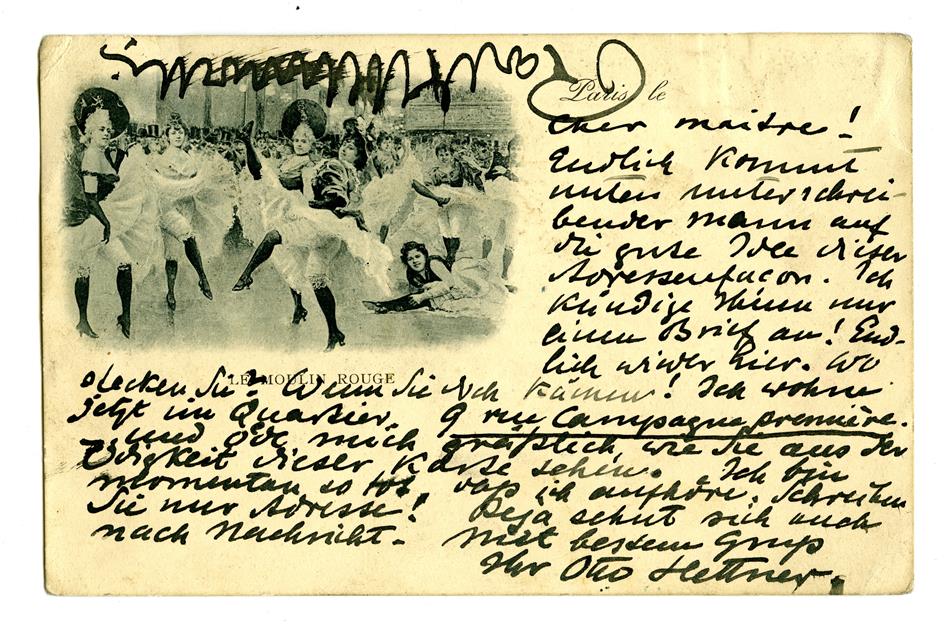 Paris, le
cher maitre!
Endlich kommt
unten unterschrei-
bender Mann auf
die gute Idee dieser
Adressenfacon. Ich
kündige Ihnen nur
einen Brief an! End-
lich wieder hier. Wo
LE MOULIN ROUGE
stecken Sie? Wenn Sie doch kämen! Ich wohne
jetzt im Quartier, 9 rue Campagne première.
und öde mich gräßlich wie Sie aus der
Ödigkeit dieser Karte sehen. Ich bin
momentan so tot daß ich aufhöre. Schreiben
Sie nur Adresse! sehnt sich auch
nach Nachricht. Mit bestem Gruß
Ihr Otto Hettner.